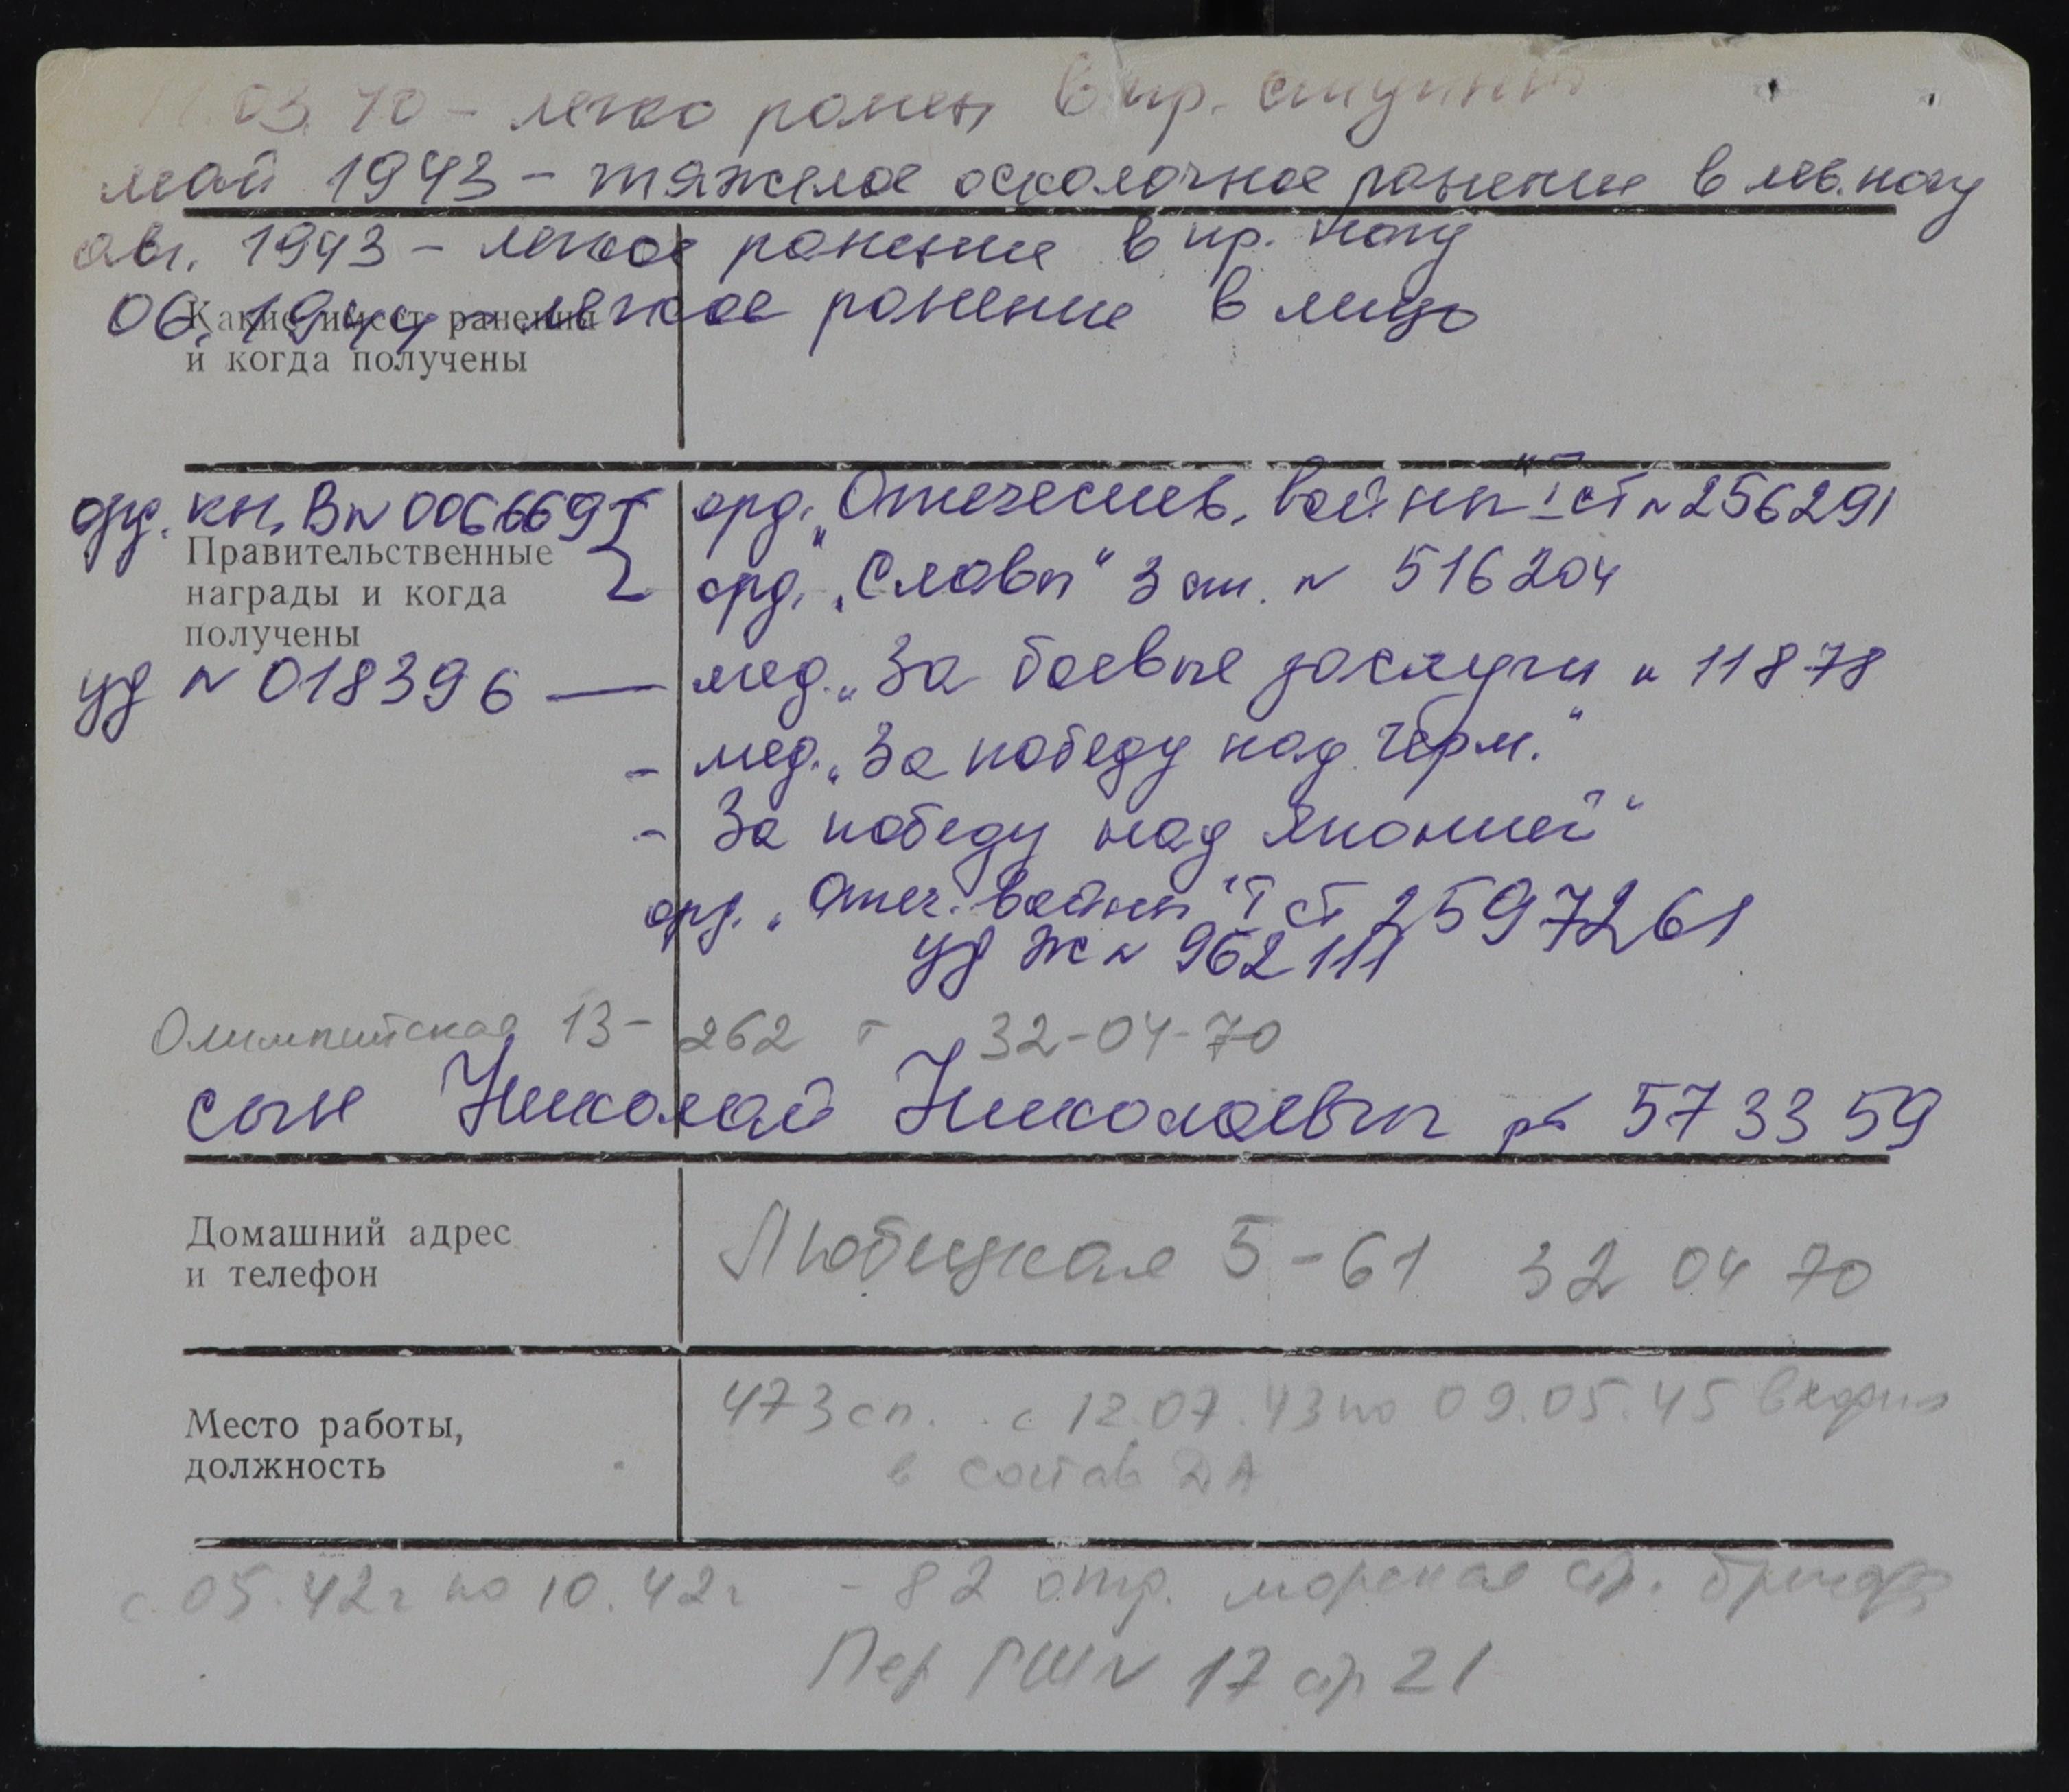 03.40 - легко ранен в пр. ступню
май 1943 - тяжелое осколочное ранение в лев. ногу
авг. 1943 - легкое ранение в пр. ногу
06.1944 - легкое ранение в лицо
Какие имеет ранения
и когда получены
орд. кн. В № 0066669 орд. „Отечествен. войны" I ст № 256291
орд. „Славы" 3 ст. № 516204
Правительственные
награды и когда
получены
уд № 018396 — мед. „За боевые заслуги № 11878
- мед. „За победу над Герм."
- За победу над Японией"
орд. „Отеч. войны" I ст 2597261
уд Ж № 962111
Олимпийская 13-262 т 32-04-70
сын Николай Николаевич рт 573359
Домашний адрес
и телефон
Любецкая 5-61 32 04 70
Место работы,
должность
473 сп. с 12.07.43 по 09.05.45 входил
в состав ДА
с 05.42г по 10.42г - 82 отд. морская стр. бригада
Пер ГШ № 17 стр 21